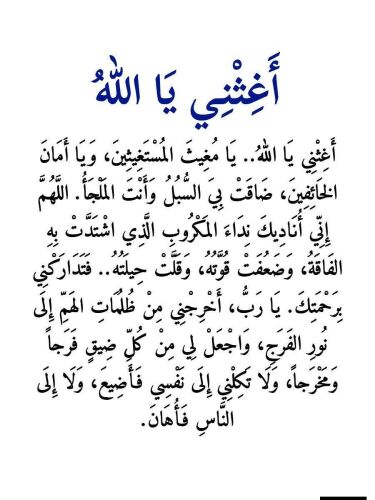 أَغِثْنِي يَا اللهُ
أَغِثْنِي يَا اللهُ.. يَا مُغِيثَ المُسْتَغِيثِينَ، وَيَا أَمَانَ
الخَائِفِينَ، ضَاقَتْ بِيَ السُّبُلُ وَأَنْتَ المَلْجَأُ. اللَّهُمَّ
إِنِّي أُنَادِيكَ نِدَاءَ المَكْرُوبِ الَّذِي اشْتَدَّتْ بِهِ
الفَاقَةُ، وَضَعُفَتْ قُوَّتُهُ، وَقَلَّتْ حِيلَتُهُ.. فَتَدَارَكْنِي
بِرَحْمَتِكَ. يَا رَبُّ، أَخْرِجْنِي مِنْ ظُلُمَاتِ الهَمِّ إِلَى
نُورِ الفَرَجِ، وَاجْعَلْ لِي مِنْ كُلِّ ضِيقٍ فَرَجاً
وَمَخْرَجاً، وَلَا تَكِلْنِي إِلَى نَفْسِي فَأَضِيعَ، وَلَا إِلَى
النَّاسِ فَأُهَانَ.